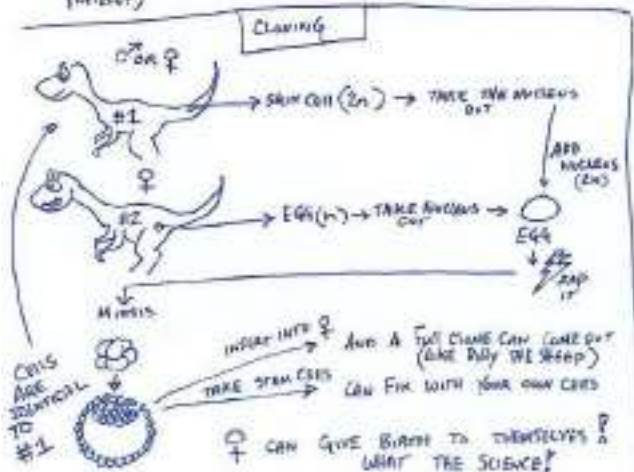 PATIENT)
CLONING
♂ OR ♀
#1
SKIN CELL (2n) → TAKE THE NUCLEUS
OUT
ADD
NUCLEUS
(2n)
♀
#2
EGG (n) → TAKE NUCLEUS
OUT
EGG
ZAP
IT
MITOSIS
CELLS
ARE
IDENTICAL
TO
#1
INSERT INTO ♀
AND A FULL CLONE CAN COME OUT
(LIKE DOLLY THE SHEEP)
TAKE STEM CELLS
CAN FIX WITH YOUR OWN CELLS
♀ CAN GIVE BIRTH TO THEMSELVES!
WHAT THE SCIENCE!